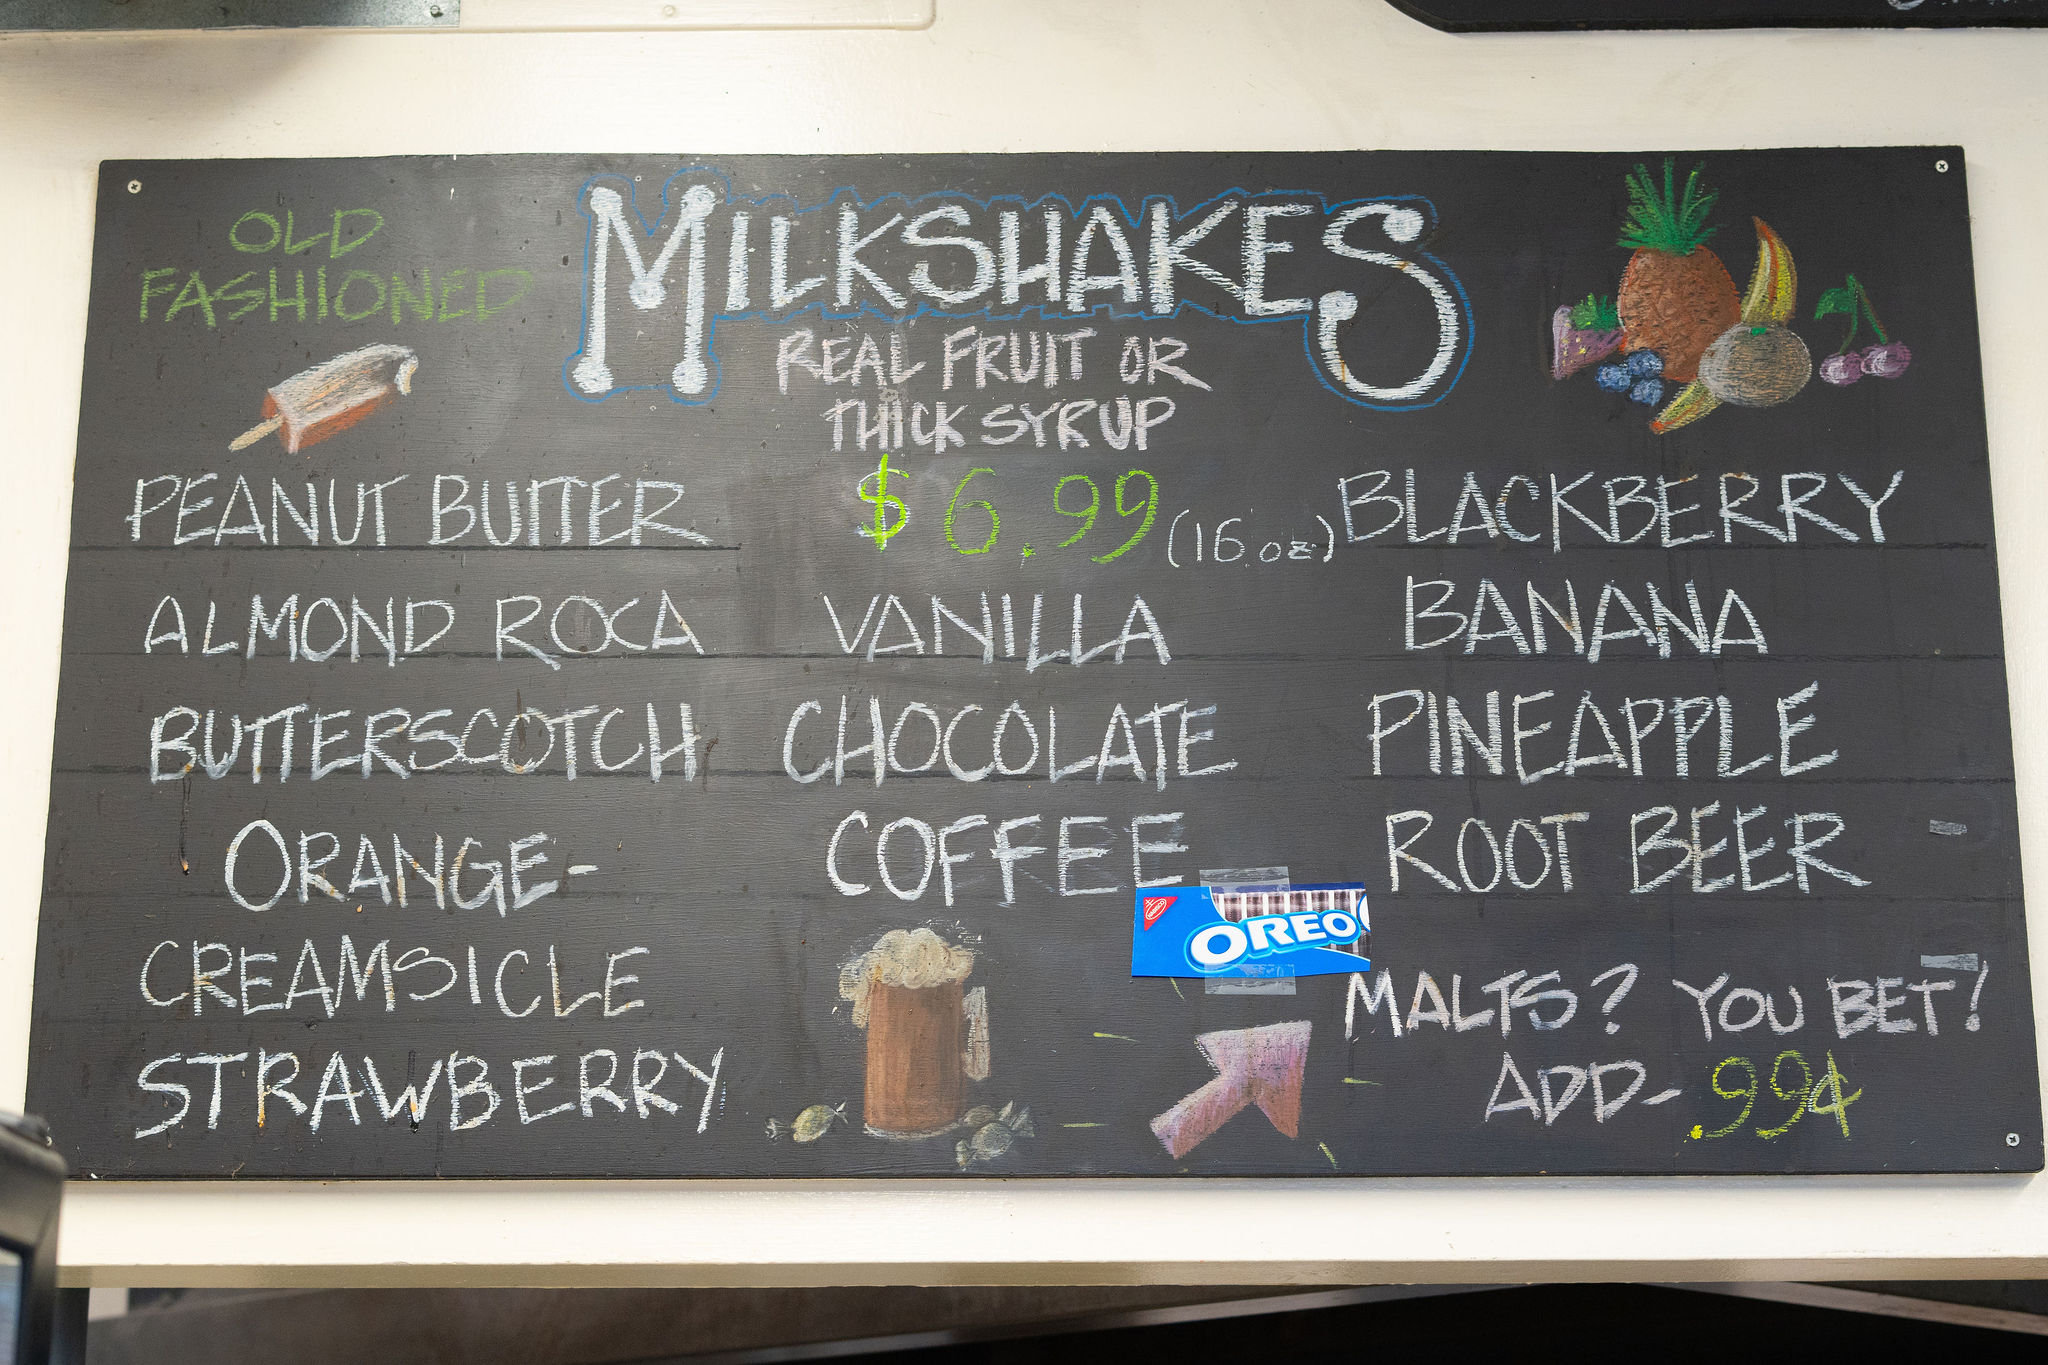 OLD
FASHIONED
MILKSHAKES
REAL FRUIT OR
THICK SYRUP
$6.99 (16 oz.)
PEANUT BUTTER
ALMOND ROCA
BUTTERSCOTCH
ORANGE-
CREAMSICLE
STRAWBERRY
VANILLA
CHOCOLATE
COFFEE
NABISCO
OREO
BLACKBERRY
BANANA
PINEAPPLE
ROOT BEER
MALTS? YOU BET!
ADD- .99¢